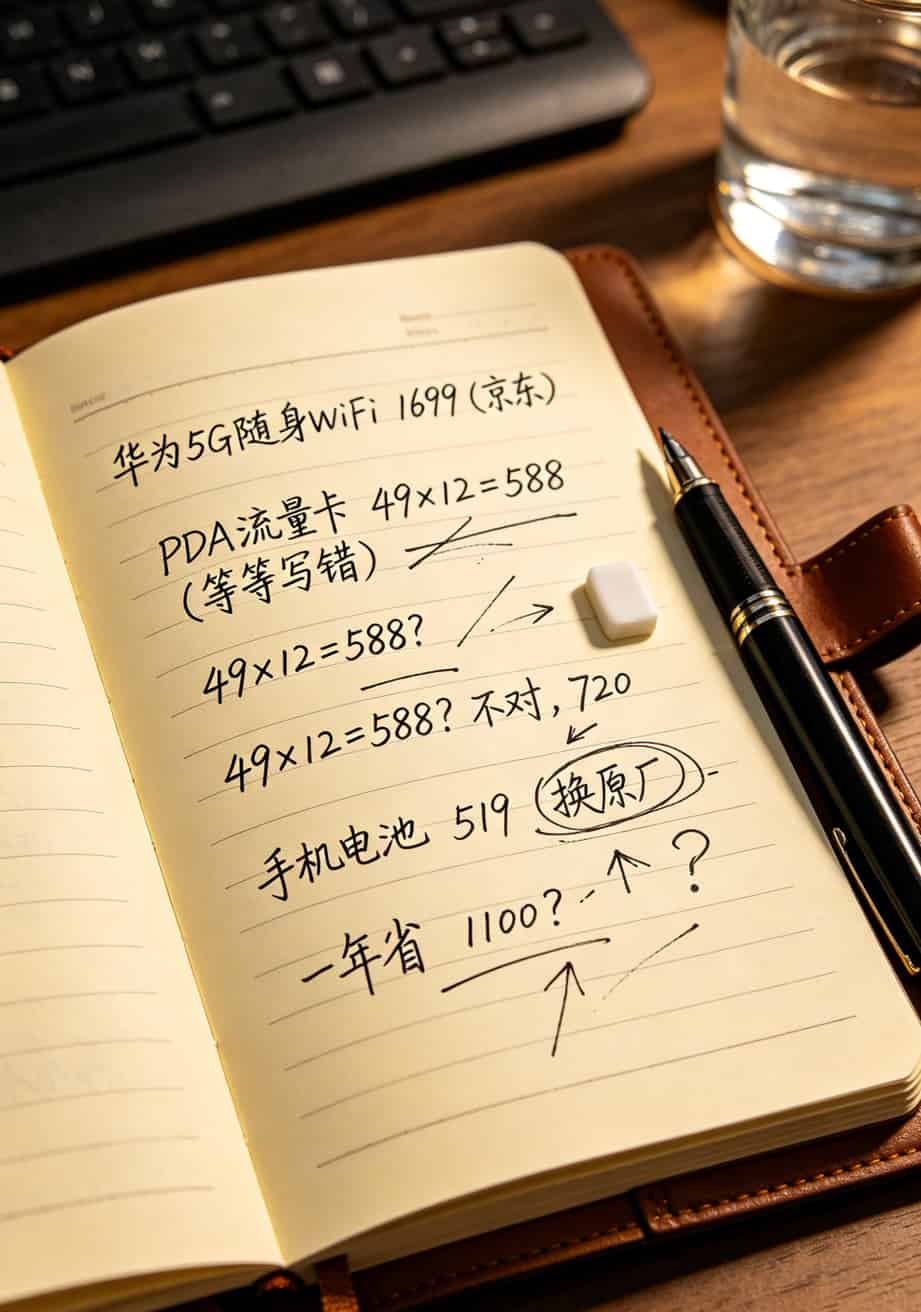 华为5G随身WiFi 1699(京东)
PDA流量卡 49×12=588
(等等写错)
49×12=588?
49×12=588? 不对,720
手机电池 519 换原厂
?
一年省 1100?